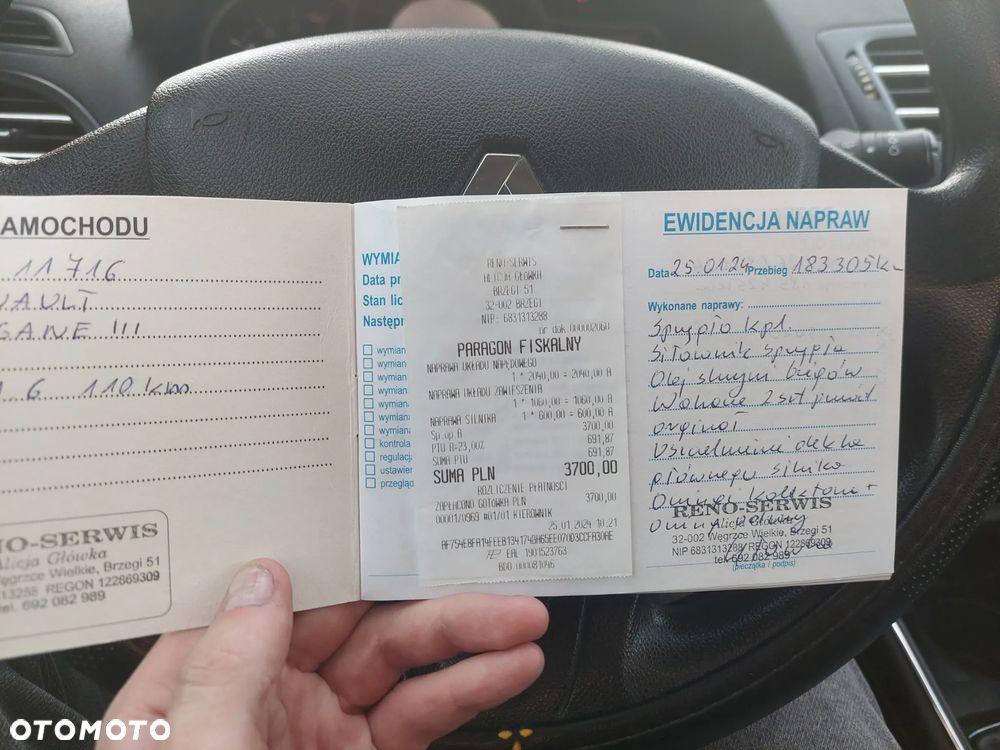 AMOCHODU
11716
VAULT
GANE III
1 6 110 km
NO-SERWIS
Alicja Główka
Węgrzce Wielkie, Brzegi 51
13288 REGON 122869309
tel. 692 082 989
WYMIA
Data pr
Stan lic
Następn
wymian
wymian
wymian
wymian
wymiana
wymiana
wymiana
kontrola
regulacj
ustawier
przegląd
RENO-SERWIS
ALICJA GŁÓWKA
BRZEGI 51
32-002 BRZEGI
NIP: 6831313288
nr dok.000002060
PARAGON FISKALNY
NAPRAWA UKŁADU NAPĘDOWEGO
1 * 2040,00 = 2040,00 A
NAPRAWA UKŁADU ZAWIESZENIA
1 * 1060,00 = 1060,00 A
NAPRAWA SILNIKA 1 * 600,00 = 600,00 A
Sp.op.A 3700,00
PTU A=23,00% 691,87
SUMA PTU 691,87
SUMA PLN 3700,00
ROZLICZENIE PŁATNOŚCI
ZAPŁACONO GOTÓWKA PLN 3700,00
00001/0969 #01/01 KIEROWNIK
25.01.2024 10:21
EAL 1901523763
EWIDENCJA NAPRAW
Data 25.01.24 Przebieg 183305k
Wykonane naprawy:
Sprzęgło kpl.
Siłownik sprzęgła
Olej skrzyni biegów
Wahacze 2szt przód
orginał
Uszczelnienie dekla
głównego silnika
RENO-SERWIS
Alicja Główka
32-002 Węgrzce Wielkie, Brzegi 51
NIP 6831313288 REGON 122869309
tel. 692 082 989
(pieczątka i podpis)
OTOMOTO